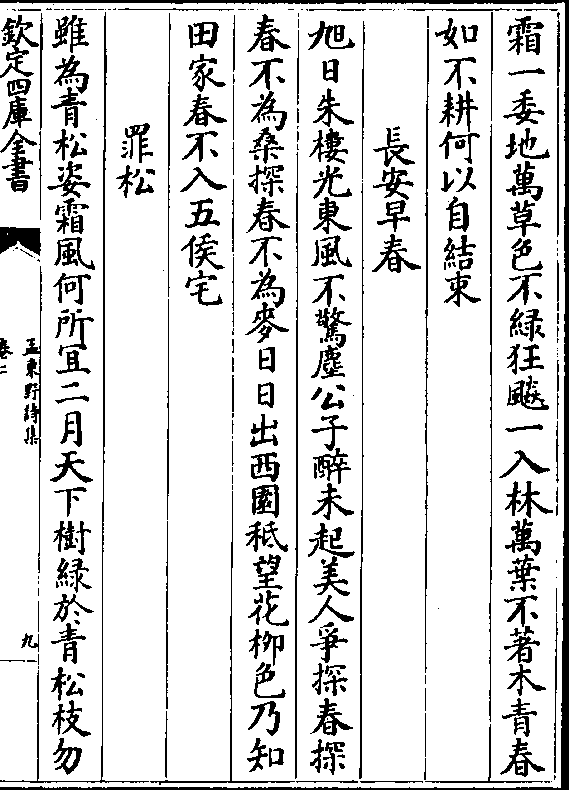 霜一委地萬草色不緑狂飈一入林萬葉不著木青春
如不耕何以自結束
長安早春
旭日朱樓光東風不驚塵公子醉未起美人爭探春探
春不為桑探春不為麥日日出西園秪望花柳色乃知
田家春不入五侯宅
罪松
雖為青松姿霜風何所宜二月天下樹緑於青松枝勿
欽定四庫全書
孟東野詩集
卷二
九